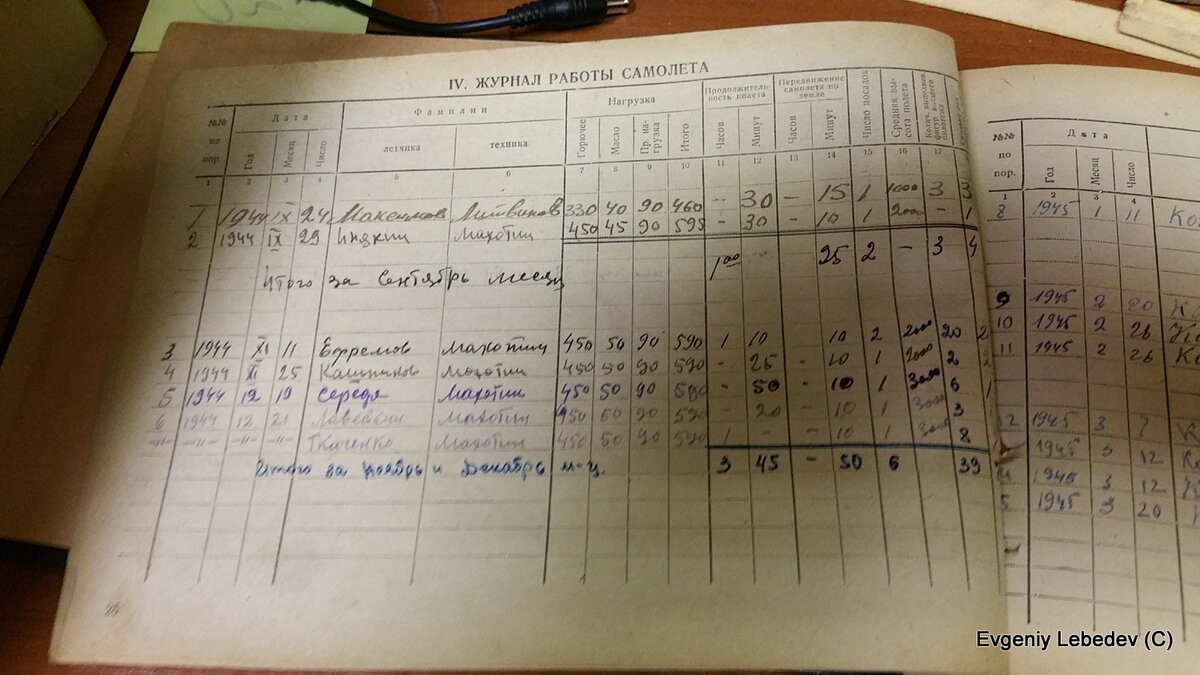 IV. ЖУРНАЛ РАБОТЫ САМОЛЕТА
№№ по пор. Дата Фамилии Нагрузка Продолжительность полета Передвижение самолета по земле Число посадок Средняя высота полета
Год Месяц Число летчика техника Горючее Масло Пр. нагрузка Итого Часов Минут Часов Минут
1 2 3 4 5 6 7 8 9 10 11 12 13 14 15 16 17
1 1944 IX 24 Максимов Литвинов 330 40 90 460 - 30 - 15 1 1000 3 3
2 1944 IX 29 Инякин Махотин 450 45 90 595 - 30 - 10 1 2000 - 1
Итого за Сентябрь месяц 1 00 25 2 - 3 4
3 1944 XI 11 Ефремов Махотин 450 50 90 590 1 10 10 2 2000 20 2
4 1944 XI 25 Махотин 450 50 90 590 - 25 - 10 1 2000 2 2
5 1944 12 19 Середа Махотин 450 50 90 590 - 50 - 10 1 3000 6 1
6 1944 12 21 Махотин 450 50 90 590 - 20 - 10 1 3000 3
-"- -"- -"- Ткаченко Махотин 450 50 90 590 1 - - 10 1 3000 8
Итого за Ноябрь и Декабрь м-ц. 3 45 - 50 6 39
№№ по пор. Дата
Год Месяц Число
1 2 3 4
8 1945 1 11
9 1945 2 20
10 1945 2 26
11 1945 2 26
12 1945 3 7
1945 3 12
1945 3 12
1945 3 20
Evgeniy Lebedev (C)